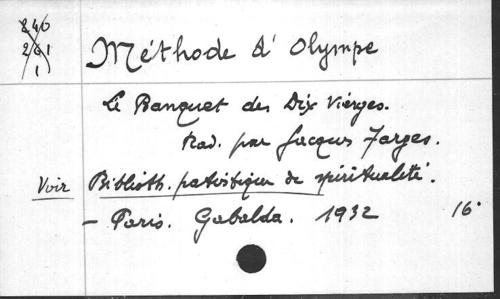 240
261
1
Méthode d'Olympe
Le Banquet des Dix Vierges.
Trad. par Jacques Farges.
Voir Biblioth. patristique de spiritualité.
- Paris. Gabalda. 1932 16°